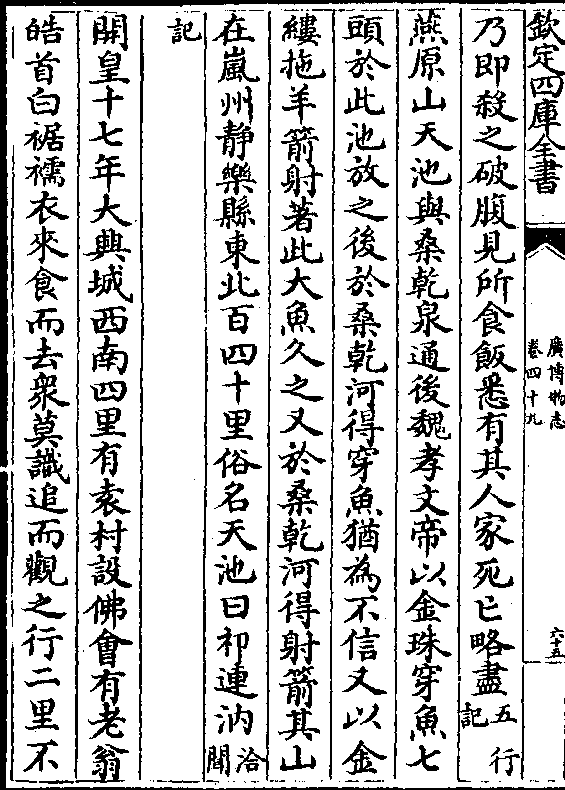 欽定四庫全書
廣博物志
卷四十九
六十五
乃即殺之破腹見所食飯悉有其人家死亡略盡五行
記
燕原山天池與桑乾泉通後魏孝文帝以金珠穿魚七
頭於此池放之後於桑乾河得穿魚猶為不信又以金
縷拖羊箭射著此大魚久之又於桑乾河得射箭其山
在嵐州靜樂縣東北百四十里俗名天池曰祁連汭洽聞
記
開皇十七年大興城西南四里有袁村設佛會有老翁
皓首白裾襦衣來食而去衆莫識追而觀之行二里不